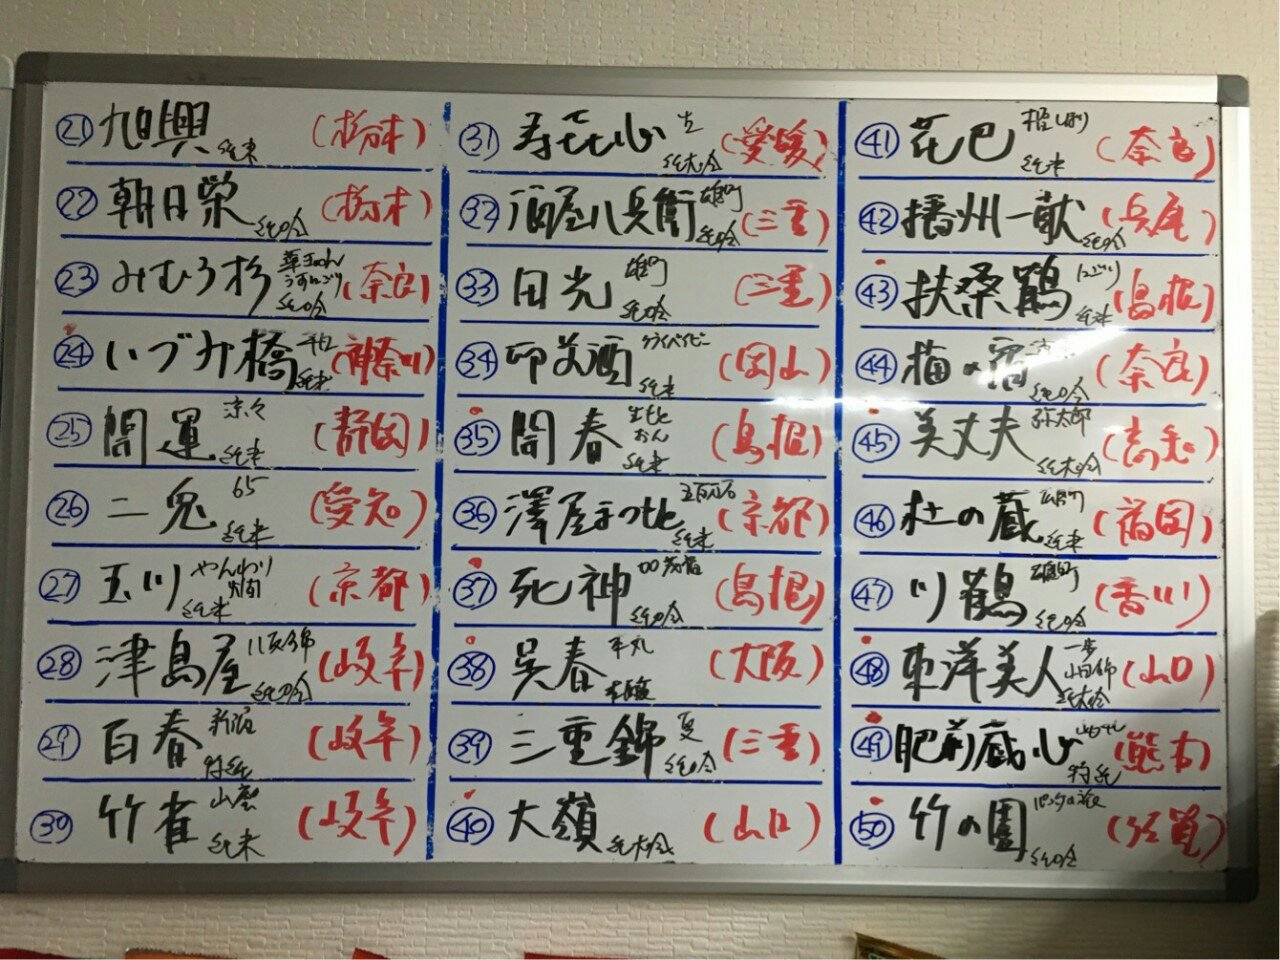 ㉑ 旭興 純米 (栃木)
㉒ 朝日栄 純吟 (栃木)
㉓ みむろ杉 純吟 (奈良)
㉔ いづみ橋 純米 (神奈川)
㉕ 開運 涼々 純米 (静岡)
㉖ 二兎 65 純米 (愛知)
㉗ 玉川 やんわり 純米 (京都)
㉘ 津島屋 八反錦 純吟 (岐阜)
㉙ 百春 特純 (岐阜)
㉚ 竹雀 山廃 純米 (岐阜)
㉛ 寿喜心 純大吟 (愛媛)
㉜ 酒屋八兵衛 雄町 純吟 (三重)
㉝ 田光 雄町 純吟 (三重)
㉞ 御前酒 純米 (岡山)
㉟ 開春 生もと おん 純米 (島根)
㊱ 澤屋まつもと 五百万石 純米 (京都)
㊲ 死神 純吟 (島根)
㊳ 呉春 本丸 本醸 (大阪)
㊴ 三重錦 夏 純吟 (三重)
㊵ 大嶺 純大吟 (山口)
㊶ 花巴 純米 (奈良)
㊷ 播州一献 純吟 (兵庫)
㊸ 扶桑鶴 にごり 純米 (島根)
㊹ 梅の宿 純吟 (奈良)
㊺ 美丈夫 弥太郎 純大吟 (高知)
㊻ 杜の蔵 雄町 純米 (福岡)
㊼ 川鶴 雄町 純吟 (香川)
㊽ 東洋美人 一歩 山田錦 純大吟 (山口)
㊾ 肥前蔵心 特純 (熊本)
㊿ 竹の園 純吟 (佐賀)